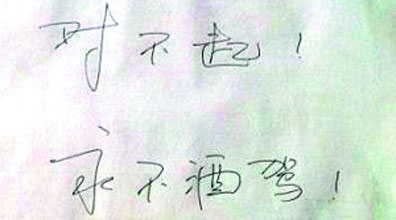 对不起！
永不酒驾！